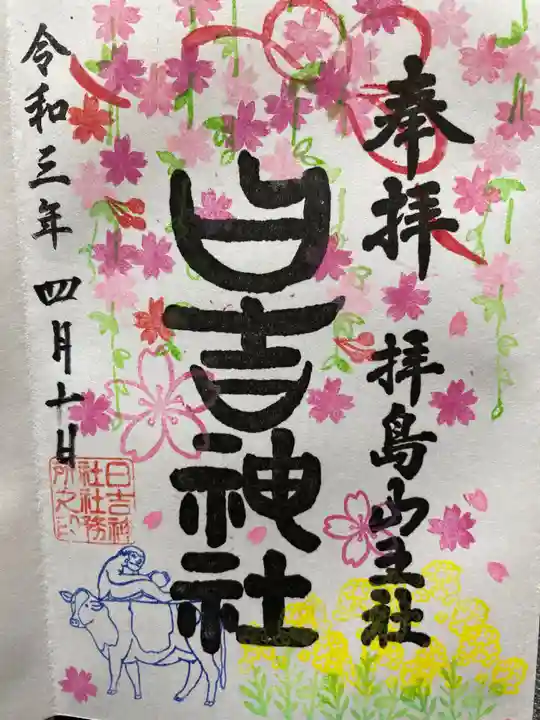 奉拝
拝島山王社
日吉神社
令和三年四月十日
日吉神
社社務
所之印